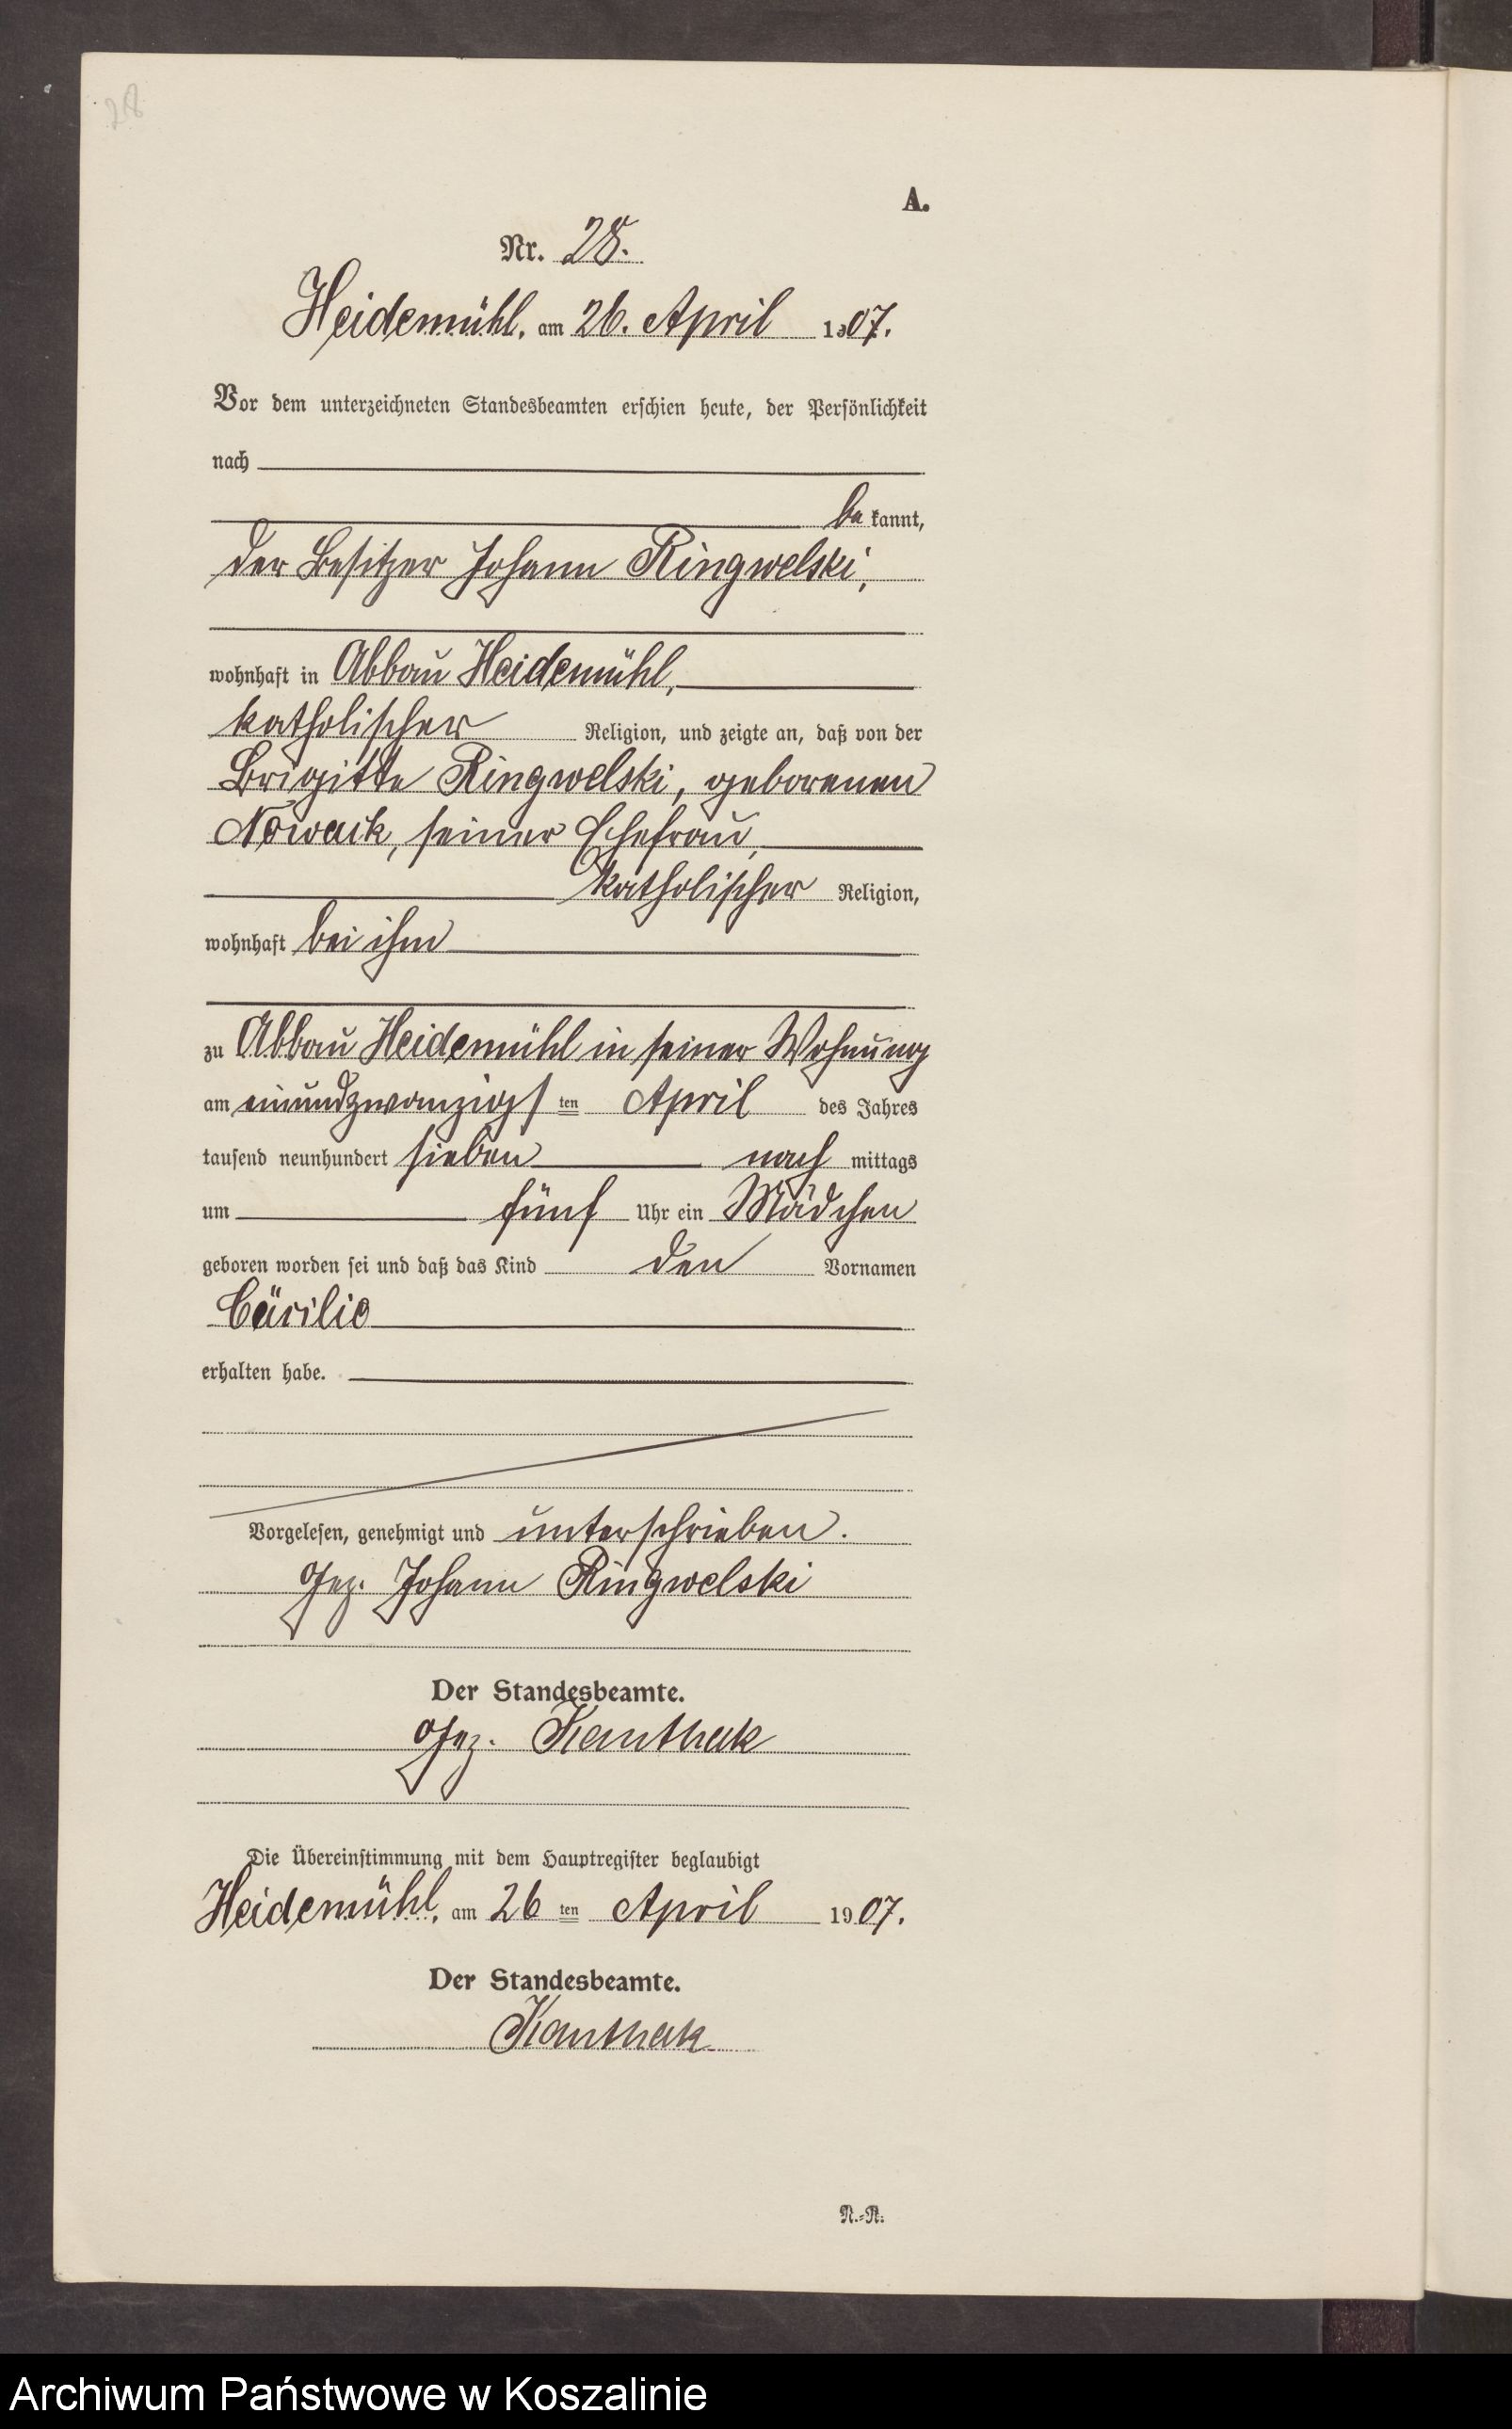 28
A.
Nr. 28.
Heidemühl, am 26. April 1907.
Vor dem unterzeichneten Standesbeamten erschien heute, der Persönlichkeit
nach
be kannt,
der Besitzer Johann Ringwelski,
wohnhaft in Abbau Heidemühl,
katholischer Religion, und zeigte an, daß von der
Brigitte Ringwelski, geborenen
Nowack, seiner Ehefrau,
katholischer Religion,
wohnhaft bei ihm
zu Abbau Heidemühl in seiner Wohnung
am einundzwanzigsten April des Jahres
tausend neunhundert sieben nach mittags
um fünf Uhr ein Mädchen
geboren worden sei und daß das Kind den Vornamen
Cäcilie
erhalten habe.
Vorgelesen, genehmigt und unterschrieben.
Gez. Johann Ringwelski
Der Standesbeamte.
Gez. Kanthak
Die Übereinstimmung mit dem Hauptregister beglaubigt
Heidemühl, am 26 ten April 1907.
Der Standesbeamte.
Kanthak
N.-R.
Archiwum Państwowe w Koszalinie